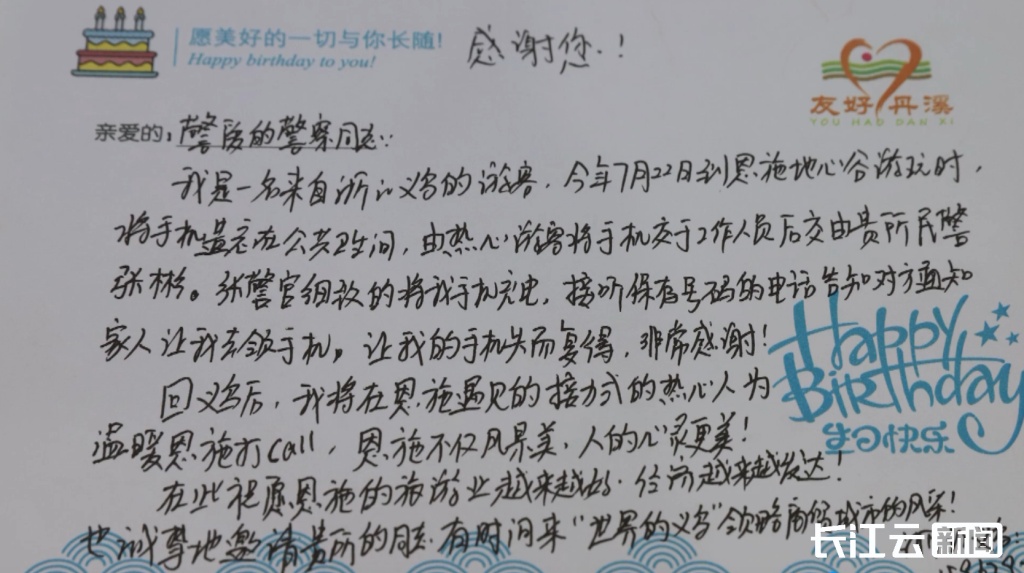 愿美好的一切与你长随!
Happy birthday to you!
感谢您.!
友好丹溪
YOU HAO DAN XI
亲爱的: 警察同志:
我是一名来自浙江义乌的游客,今年7月22日到恩施地心谷游玩时,
将手机遗忘在公共卫生间,由热心游客将手机交于工作人员后交由贵所民警
张彬。张警官细致的将我手机充电,接听保存号码的电话告知对方通知
家人让我去领手机,让我的手机失而复得,非常感谢!
回义乌后,我将在恩施遇见的接力式的热心人为
温暖恩施打call,恩施不仅风景美,人的心灵更美!
在此祝愿恩施的旅游业越来越好.越来越发达!
也诚挚地邀请贵所的同志有时间来"世界的义乌"领略商贸城市的风采!
Happy
Birthday
生日快乐
长江云新闻